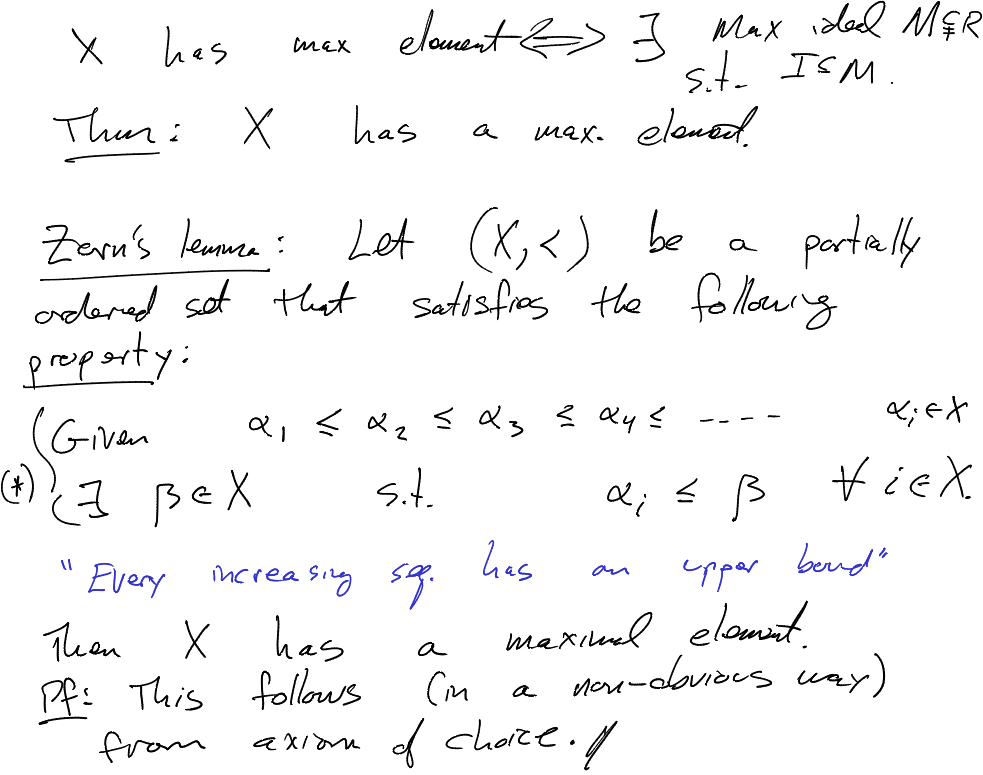 X has max element ⟺ ∃ Max ideal M⊊R
s.t. I⊆M.
Thm: X has a max. element.
Zorn's lemma: Let (X,<) be a partially
ordered set that satisfies the following
property:
Given α₁ ≤ α₂ ≤ α₃ ≤ α₄ ≤ ---- αᵢ∈X
(*) ∃ β∈X s.t. αᵢ ≤ β ∀ i∈X.
"Every increasing seq. has an upper bound"
Then X has a maximal element.
Pf: This follows (in a non-obvious way)
from axiom of choice. //